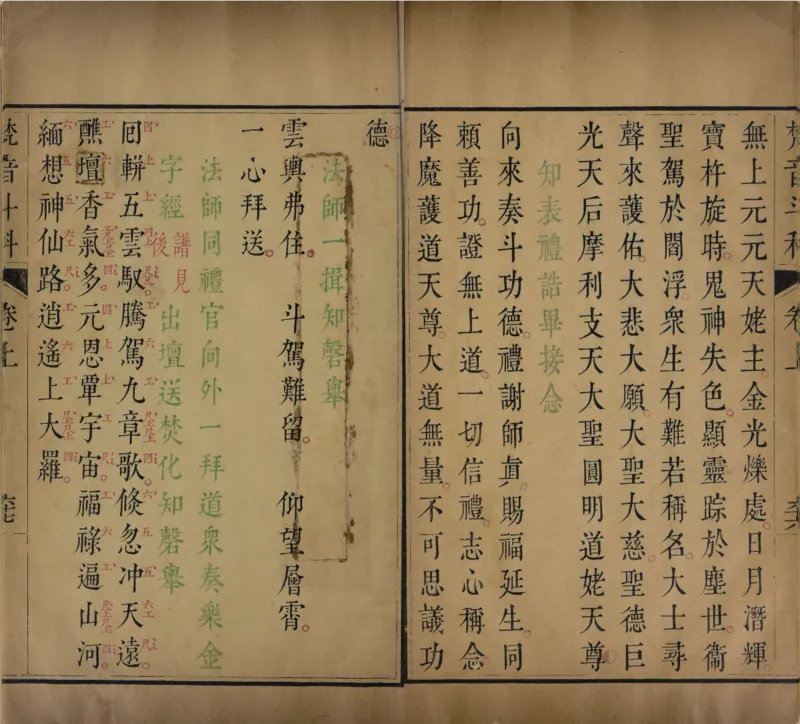 梵音斗科 卷上
無上元元天姥主。金光爍處。日月潛輝。
寶杵旋時。鬼神失色。顯靈踪於塵世。衞
聖駕於閻浮。衆生有難若稱名。大士尋
聲來護佑。大悲大願。大聖大慈。聖德巨
光天后摩利支天大聖圓明道姥天尊
知表禮誥畢接念
向來奏斗功德。禮謝師眞。賜福延生。同
賴善功。證無上道。一切信禮。志心稱念
降魔護道天尊。大道無量。不可思議功
德。
法師一揖知磬舉
雲輿弗住。 斗駕難留。 仰望層霄。
一心拜送。
法師同禮官向外一拜道衆奏樂金
字經 譜見後 出壇送焚化知磬舉
囘軿五雲馭。騰駕九章歌。倐忽冲天遠。
醮壇香氣多。元恩覃宇宙。福祿遍山河。
緬想神仙路。逍遙上大羅。
梵音斗科 卷上